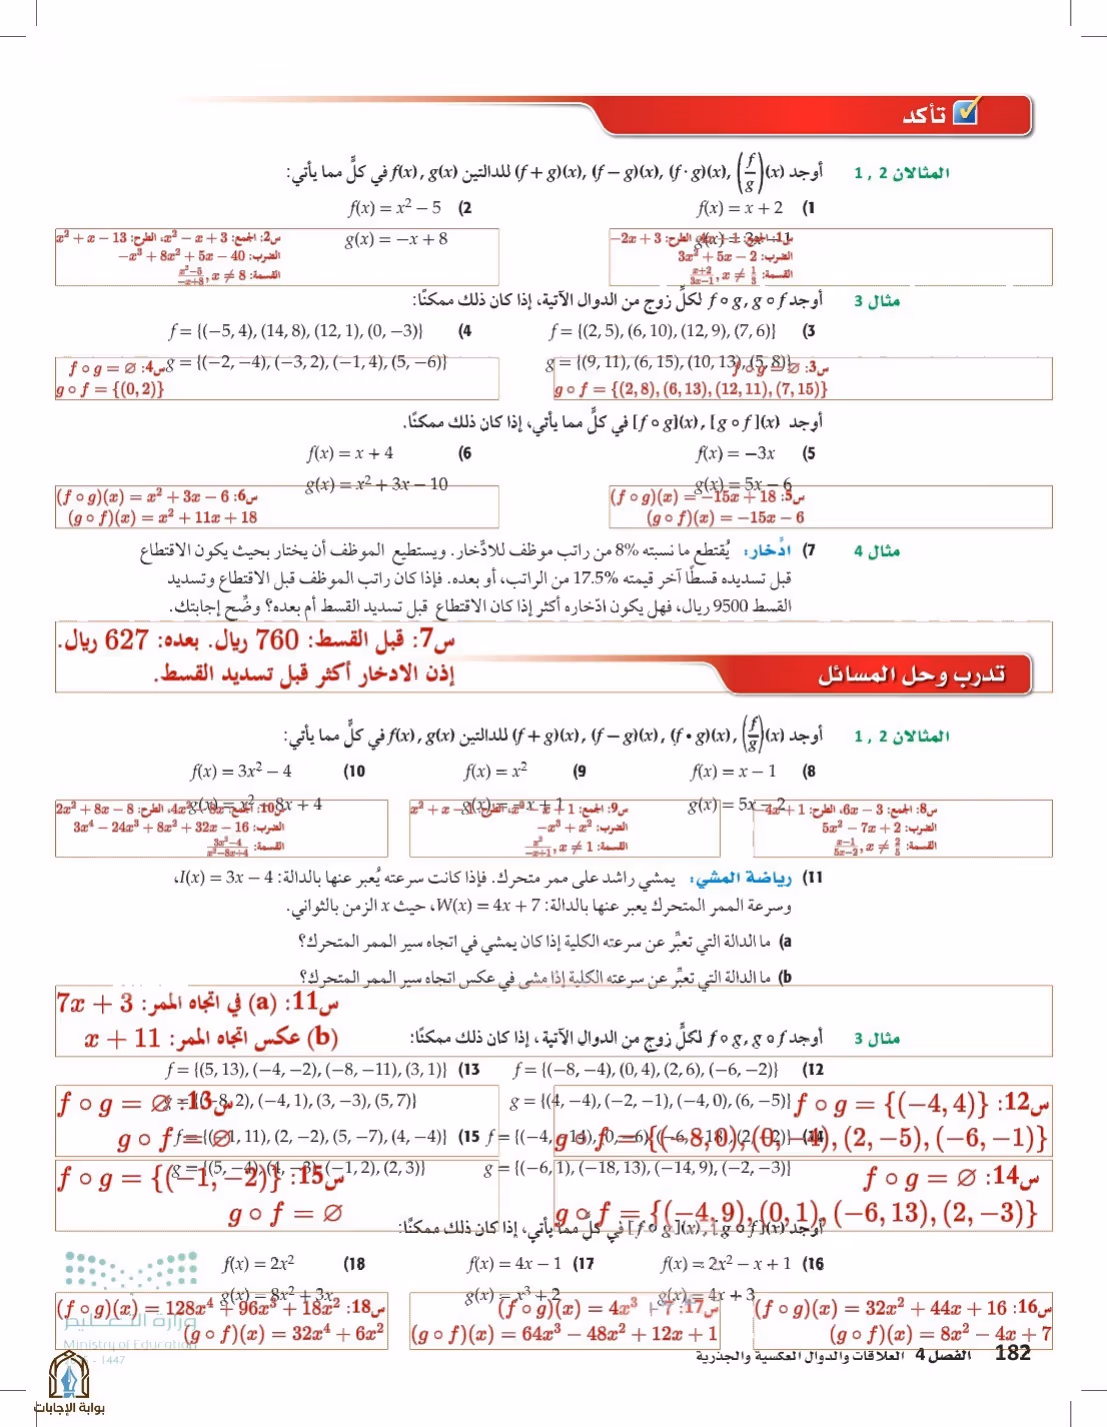 تأكد
المثالان 1 , 2 أوجد (f + g)(x), (f − g)(x), (f · g)(x), (f/g)(x) للدالتين f(x) , g(x) في كلٍّ مما يأتي:
1) f(x) = x + 2
2) f(x) = x² − 5
g(x) = −x + 8
الضرب: 3x² + 5x − 2
القسمة: (x+2)/(3x−1), x ≠ 1/3
س2: الجمع: x² − x + 3، الطرح: x² + x − 13
الضرب: −x³ + 8x² + 5x − 40
القسمة: (x²−5)/(−x+8), x ≠ 8
مثال 3 أوجد f ∘ g, g ∘ f لكلِّ زوج من الدوال الآتية، إذا كان ذلك ممكنًا:
3) f = {(2, 5), (6, 10), (12, 9), (7, 6)}
4) f = {(−5, 4), (14, 8), (12, 1), (0, −3)}
g = {(9, 11), (6, 15), (10, 13), (5, 8)}
g = {(−2, −4), (−3, 2), (−1, 4), (5, −6)}
س3: f ∘ g = ∅
g ∘ f = {(2, 8), (6, 13), (12, 11), (7, 15)}
س4: f ∘ g = ∅
g ∘ f = {(0, 2)}
أوجد [f ∘ g](x) , [g ∘ f](x) في كلٍّ مما يأتي، إذا كان ذلك ممكنًا.
5) f(x) = −3x
6) f(x) = x + 4
g(x) = 5x − 6
g(x) = x² + 3x − 10
س5: (f ∘ g)(x) = −15x + 18
(g ∘ f)(x) = −15x − 6
س6: (f ∘ g)(x) = x² + 3x − 6
(g ∘ f)(x) = x² + 11x + 18
مثال 4 7) ادّخار: يُقتطع ما نسبته 8% من راتب موظف للادّخار. ويستطيع الموظف أن يختار بحيث يكون الاقتطاع
قبل تسديده قسطًا آخر قيمته 17.5% من الراتب، أو بعده. فإذا كان راتب الموظف قبل الاقتطاع وتسديد
القسط 9500 ريال، فهل يكون ادّخاره أكثر إذا كان الاقتطاع قبل تسديد القسط أم بعده؟ وضّح إجابتك.
س7: قبل القسط: 760 ريال. بعده: 627 ريال.
إذن الادخار أكثر قبل تسديد القسط.
تدرب وحل المسائل
المثالان 1 , 2 أوجد (f + g)(x), (f − g)(x), (f • g)(x), (f/g)(x) للدالتين f(x) , g(x) في كلٍّ مما يأتي:
8) f(x) = x − 1
9) f(x) = x²
10) f(x) = 3x² − 4
g(x) = 5x − 2
g(x) = −x + 1
g(x) = x² − 8x + 4
س8: الجمع: 6x − 3، الطرح: −4x + 1
الضرب: 5x² − 7x + 2
القسمة: (x−1)/(5x−2), x ≠ 2/5
الضرب: −x³ + x²
القسمة: x²/(−x+1), x ≠ 1
الضرب: 3x⁴ − 24x³ + 8x² + 32x − 16
القسمة: (3x²−4)/(x²−8x+4)
11) رياضة المشي: يمشي راشد على ممر متحرك. فإذا كانت سرعته يُعبر عنها بالدالة: I(x) = 3x − 4،
وسرعة الممر المتحرك يعبر عنها بالدالة: W(x) = 4x + 7، حيث x الزمن بالثواني.
a) ما الدالة التي تعبِّر عن سرعته الكلية إذا كان يمشي في اتجاه سير الممر المتحرك؟
b) ما الدالة التي تعبِّر عن سرعته الكلية إذا مشى في عكس اتجاه سير الممر المتحرك؟
س11: (a) في اتجاه الممر: 7x + 3
(b) عكس اتجاه الممر: x + 11
مثال 3 أوجد f ∘ g, g ∘ f لكلِّ زوج من الدوال الآتية، إذا كان ذلك ممكنًا:
12) f = {(−8, −4), (0, 4), (2, 6), (−6, −2)}
13) f = {(5, 13), (−4, −2), (−8, −11), (3, 1)}
g = {(4, −4), (−2, −1), (−4, 0), (6, −5)}
g = {(−8, 2), (−4, 1), (3, −3), (5, 7)}
س12: f ∘ g = {(−4, 4)}
g ∘ f = {(−8, 0), (0, −4), (2, −5), (−6, −1)}
س13: f ∘ g = ∅
g ∘ f = ∅
15)
g = {(−6, 1), (−18, 13), (−14, 9), (−2, −3)}
س14: f ∘ g = ∅
g ∘ f = {(−4, 9), (0, 1), (−6, 13), (2, −3)}
س15: f ∘ g = {(−1, −2)}
g ∘ f = ∅
أوجد [f ∘ g](x) , [g ∘ f](x) في كلٍّ مما يأتي، إذا كان ذلك ممكنًا:
16) f(x) = 2x² − x + 1
17) f(x) = 4x − 1
18) f(x) = 2x²
g(x) = 4x + 3
g(x) = x³ + 2
g(x) = 8x² + 3x
س16: (f ∘ g)(x) = 32x² + 44x + 16
(g ∘ f)(x) = 8x² − 4x + 7
س17: (f ∘ g)(x) = 4x³ + 7
(g ∘ f)(x) = 64x³ − 48x² + 12x + 1
س18: (f ∘ g)(x) = 128x⁴ + 96x³ + 18x²
(g ∘ f)(x) = 32x⁴ + 6x²
وزارة التعليم
Ministry of Education
1447
182 الفصل 4 العلاقات والدوال العكسية والجذرية
بوابة الإجابات